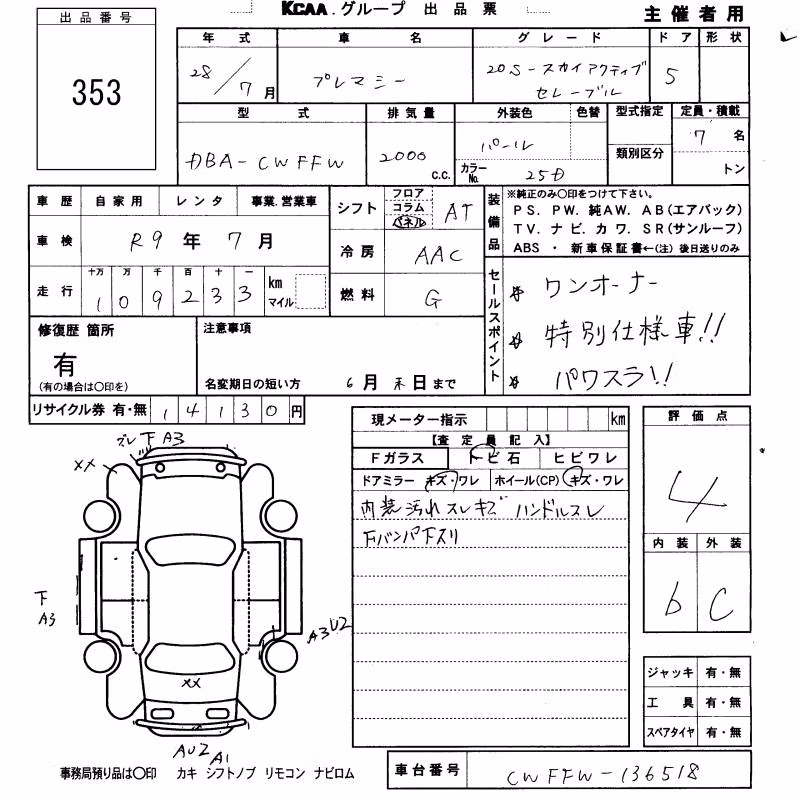 KCAA.グループ 出品票 主催者用
出品番号
353
年式 車名 グレード ドア 形状
28/7月 プレマシー 20S-スカイアクティブ セレーブル 5
型式 排気量 外装色 色替 型式指定 定員・積載
DBA-CWFFW 2000 c.c. パール 7名
カラーNo. 25D 類別区分 トン
車歴 自家用 レンタ 事業.営業車
シフト フロア コラム パネル AT
車検 R9年7月
冷房 AAC
走行 十万 万 千 百 十 一 km マイル
1 0 9 2 3 3
燃料 G
装備品 ※純正のみ○印をつけて下さい。
PS. PW. 純AW. AB(エアバック)
TV. ナビ. カワ. SR(サンルーフ)
ABS ・ 新車保証書←(注) 後日送りのみ
セールスポイント
☆ ワンオーナー
☆ 特別仕様車!!
☆ パワスラ!!
修復歴 箇所
有
(有の場合は○印を)
注意事項
名変期日の短い方 6月末日まで
リサイクル券 有・無 14130円
現メーター指示 km
【査定員記入】
Fガラス トビ石 ヒビワレ
ドアミラー キズ・ワレ ホイール(CP) キズ・ワレ
内装汚れスレキズ ハンドルスレ
FバンパFスリ
評価点
4
内装 外装
b C
ジャッキ 有・無
工具 有・無
スペアタイヤ 有・無
ブレ下A3
××
下
A3
A3U2
××
AU2 A1
事務局預り品は○印 カキ シフトノブ リモコン ナビロム
車台番号 CWFFW-136518